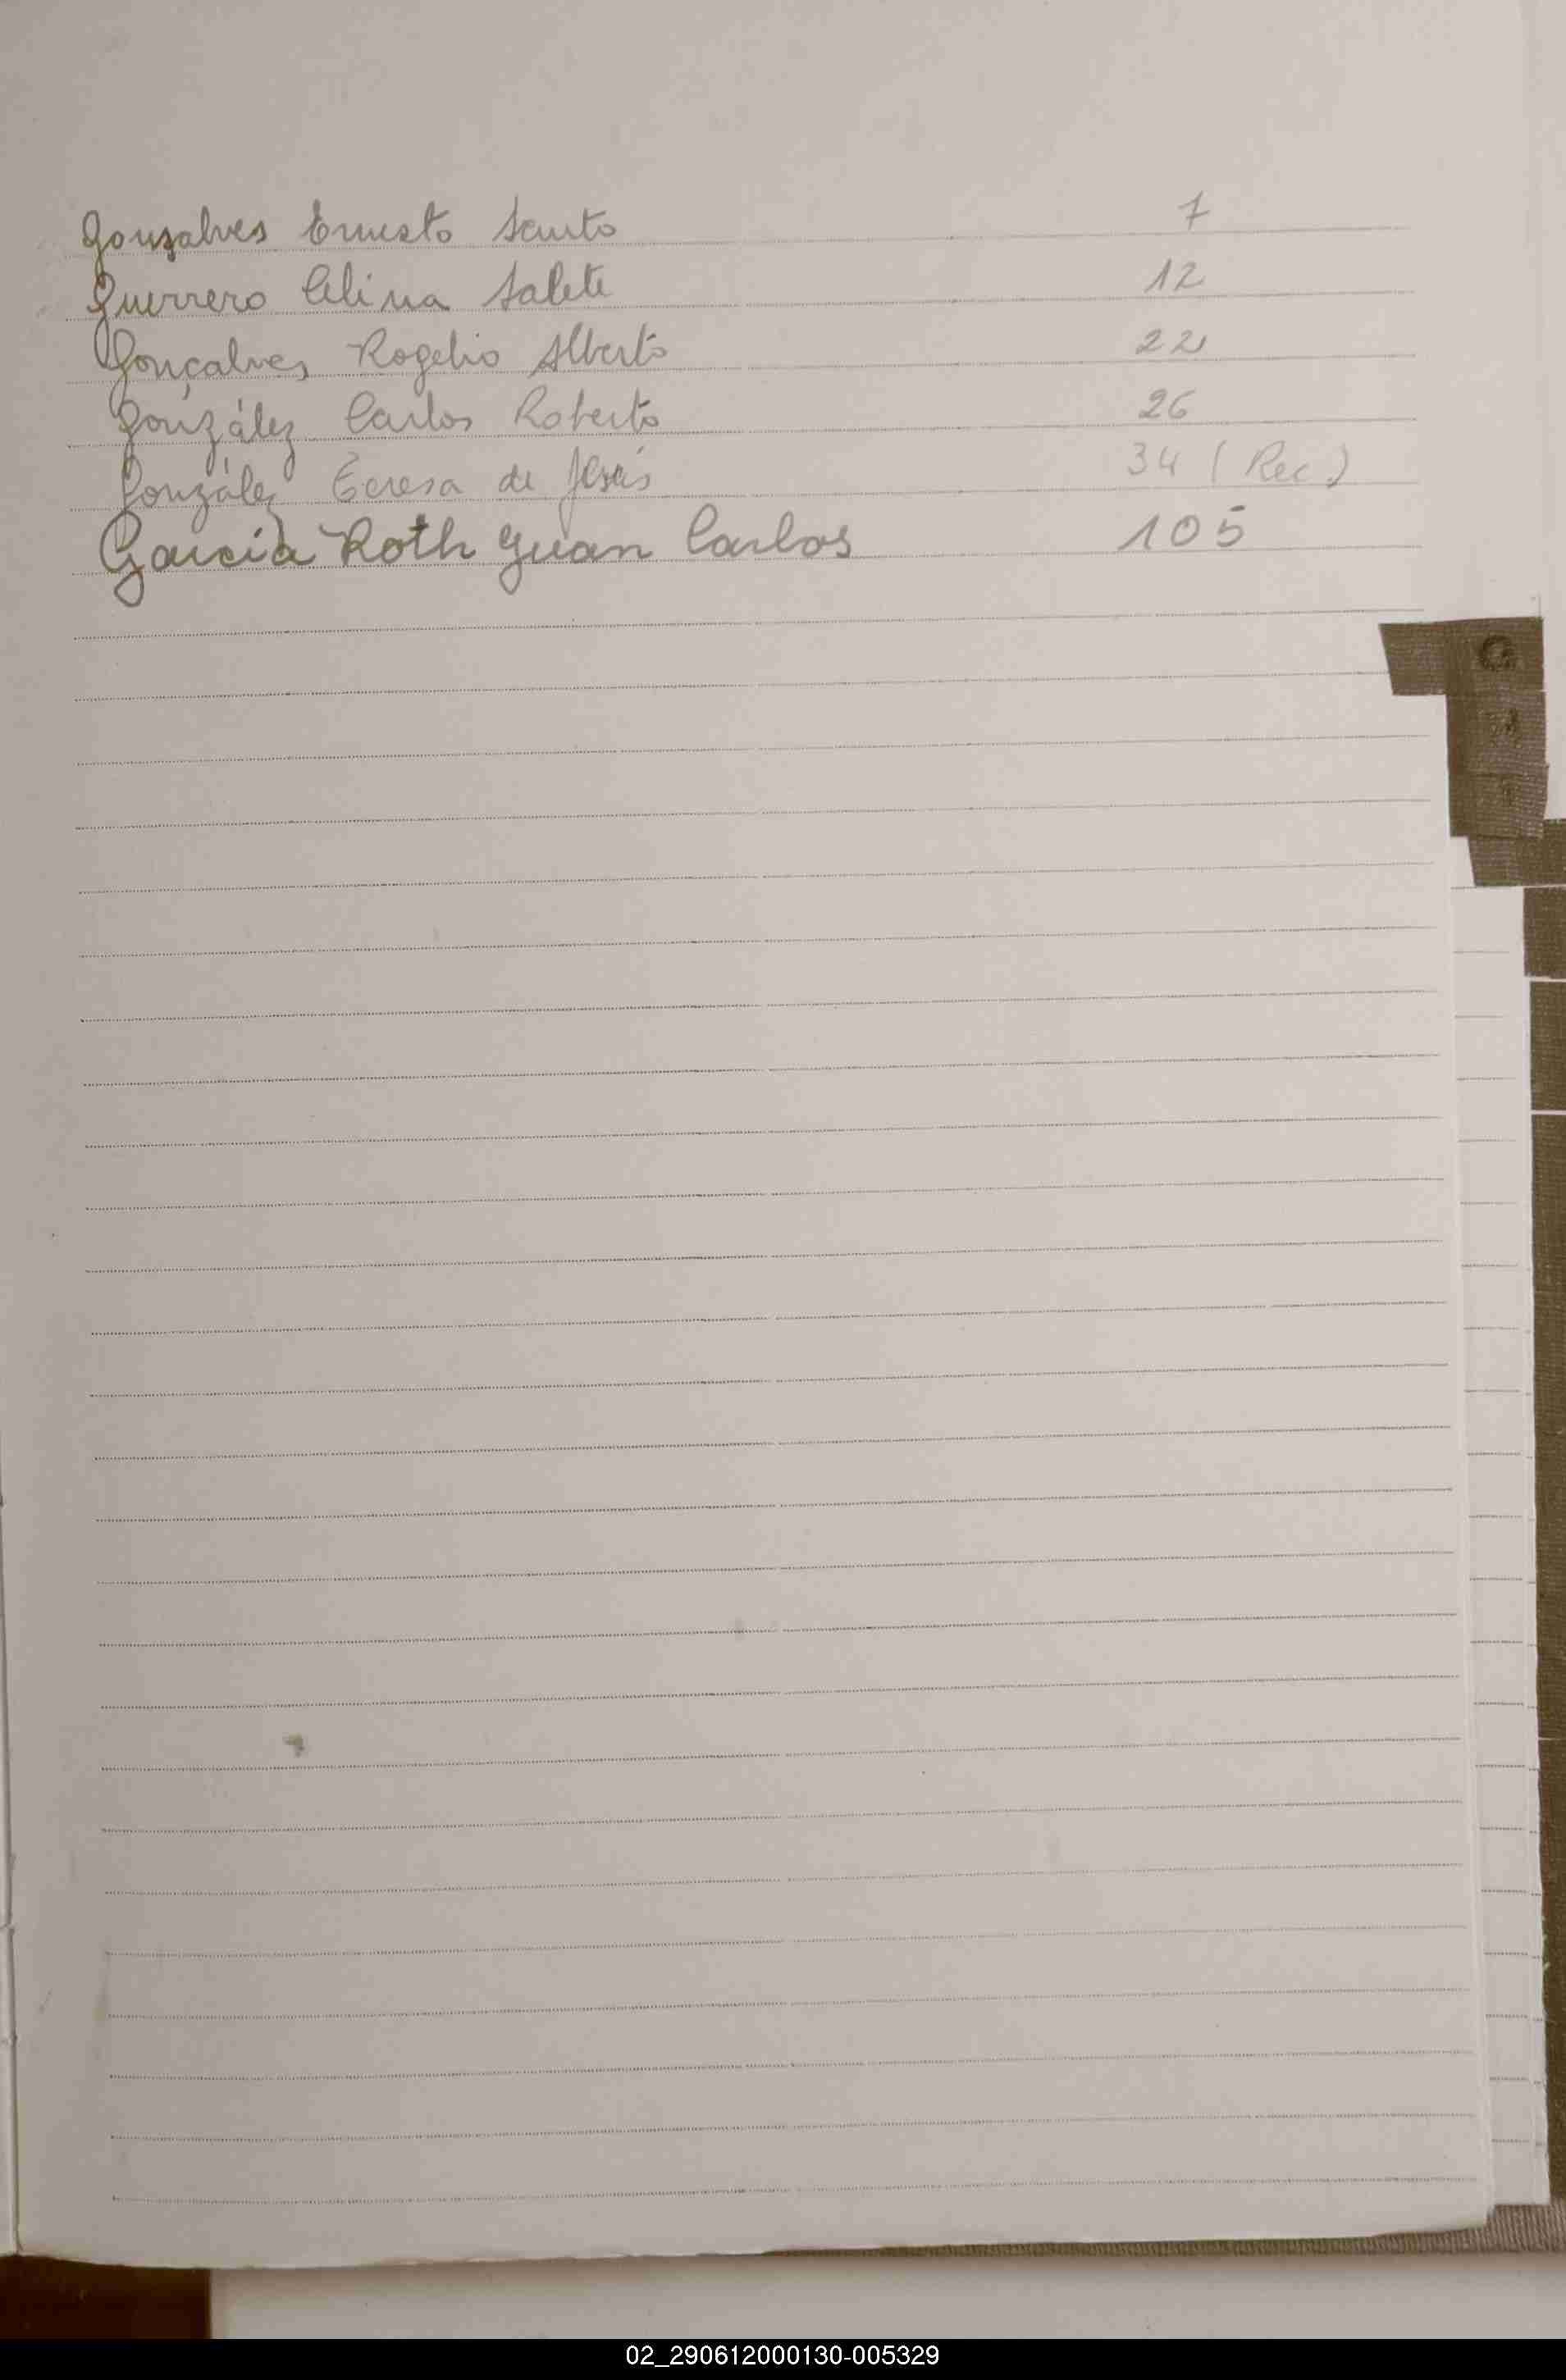 Gonsalves Ernesto Santo 7
Guerrero Celina Salete 12
Gonçalves Rogelio Alberto 22
González Carlos Roberto 26
González Teresa de Jesús 34 (Rec)
García Roth Juan Carlos 105
G
02_290612000130-005329